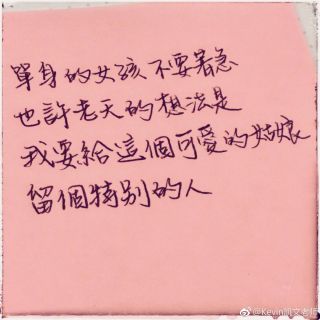 單身的女孩不要著急
也許老天的想法是
我要給這個可愛的姑娘
留個特别的人
@Kevin凯文老师